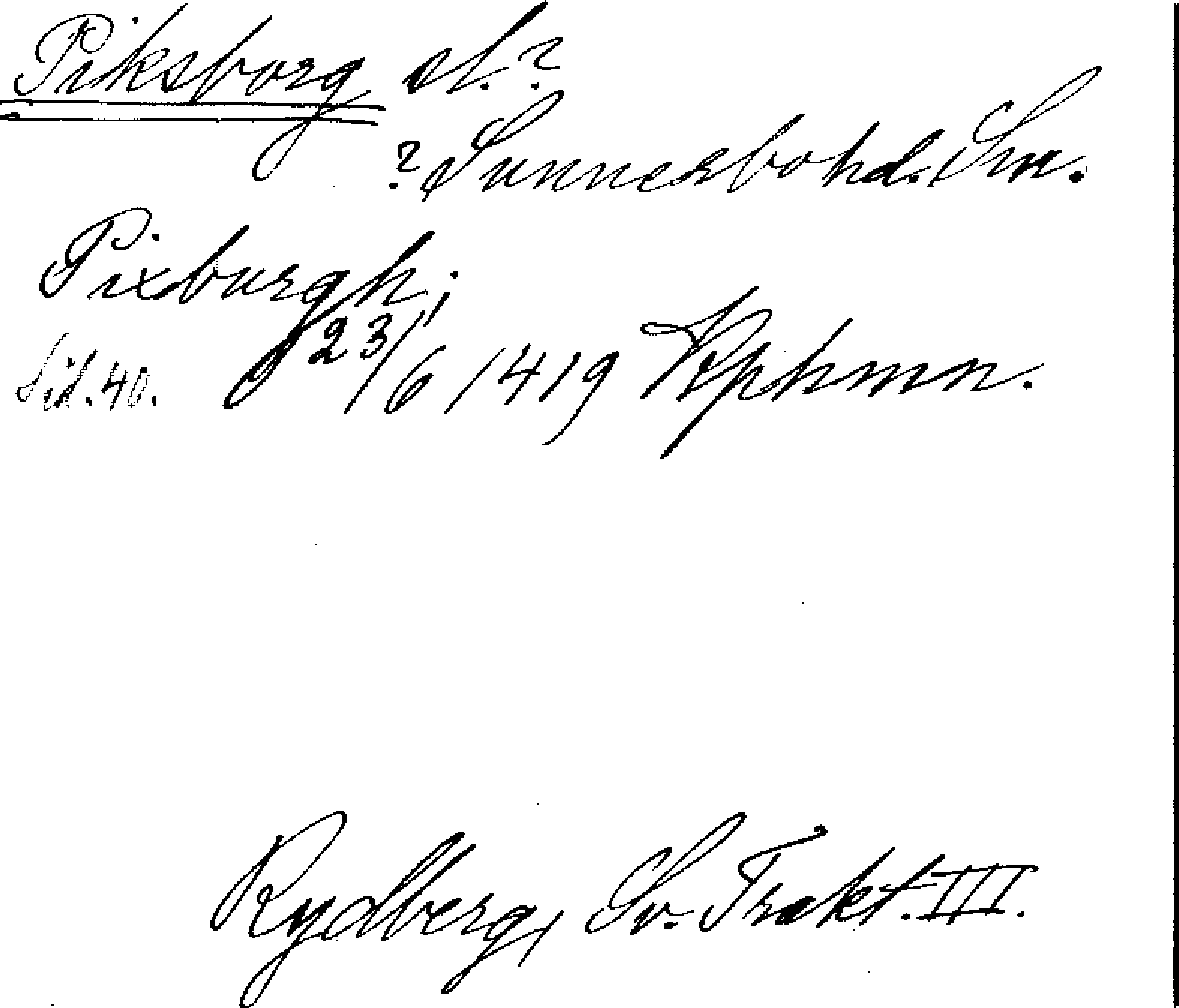 Piksborg sl.?
? Sunnerbo hd. Sm.
Pixburgh;
Sid. 40. 23/6 1419 Kphmn.
Rydberg, Sv. Trakt. III.